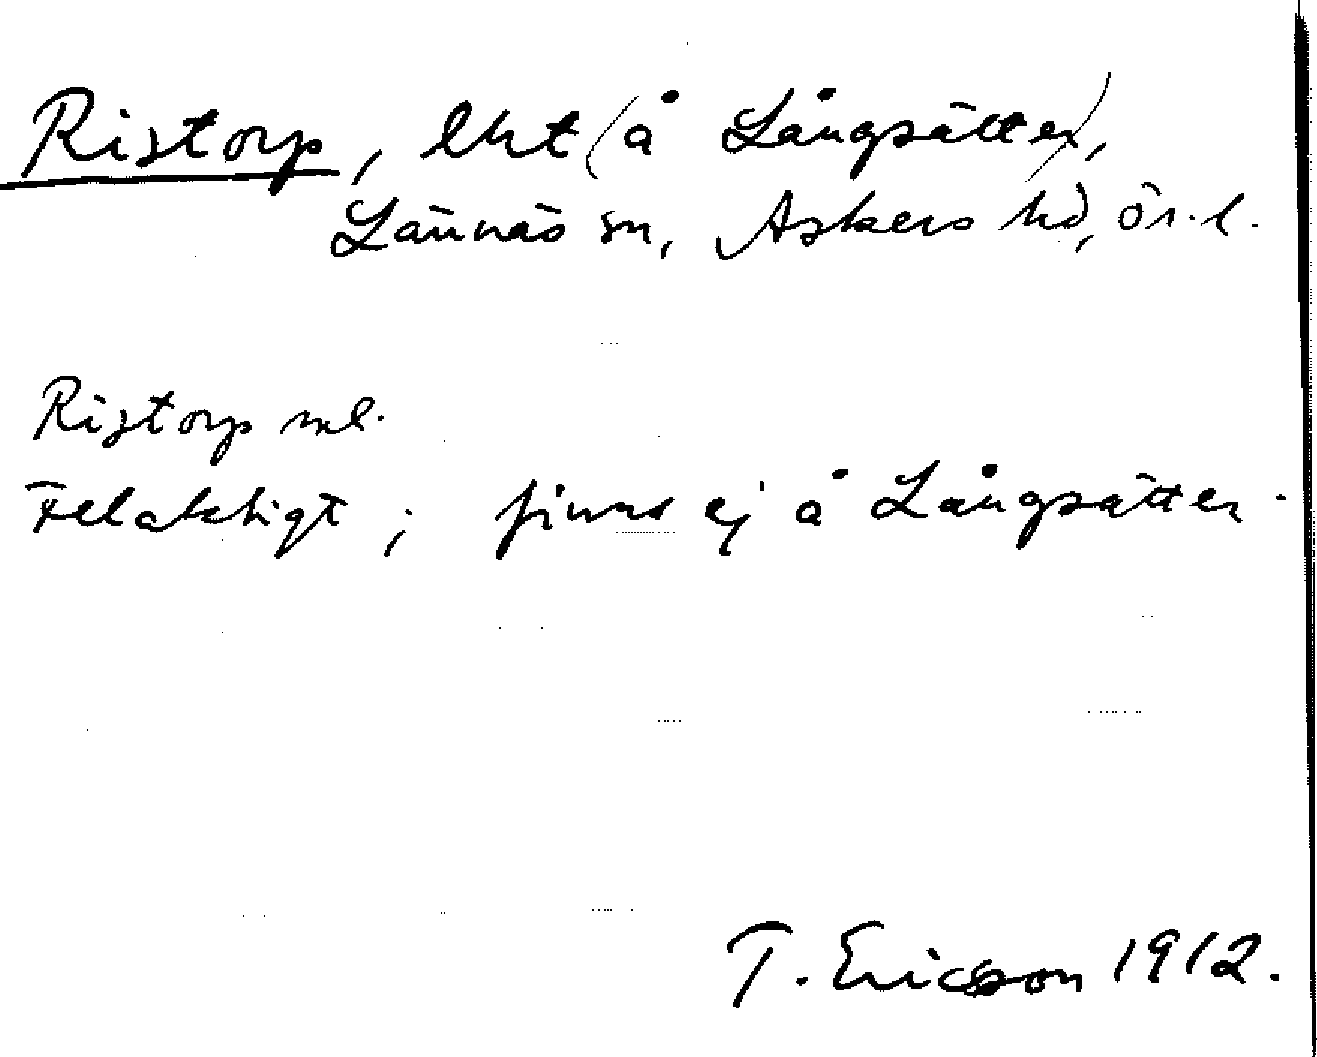 Ristorp, lht (å Långsätter),
Lännäs sn, Askers hd, Ör. l.
Ristorp ml.
Felaktigt; finns ej å Långsätter.
T. Ericsson 1912.